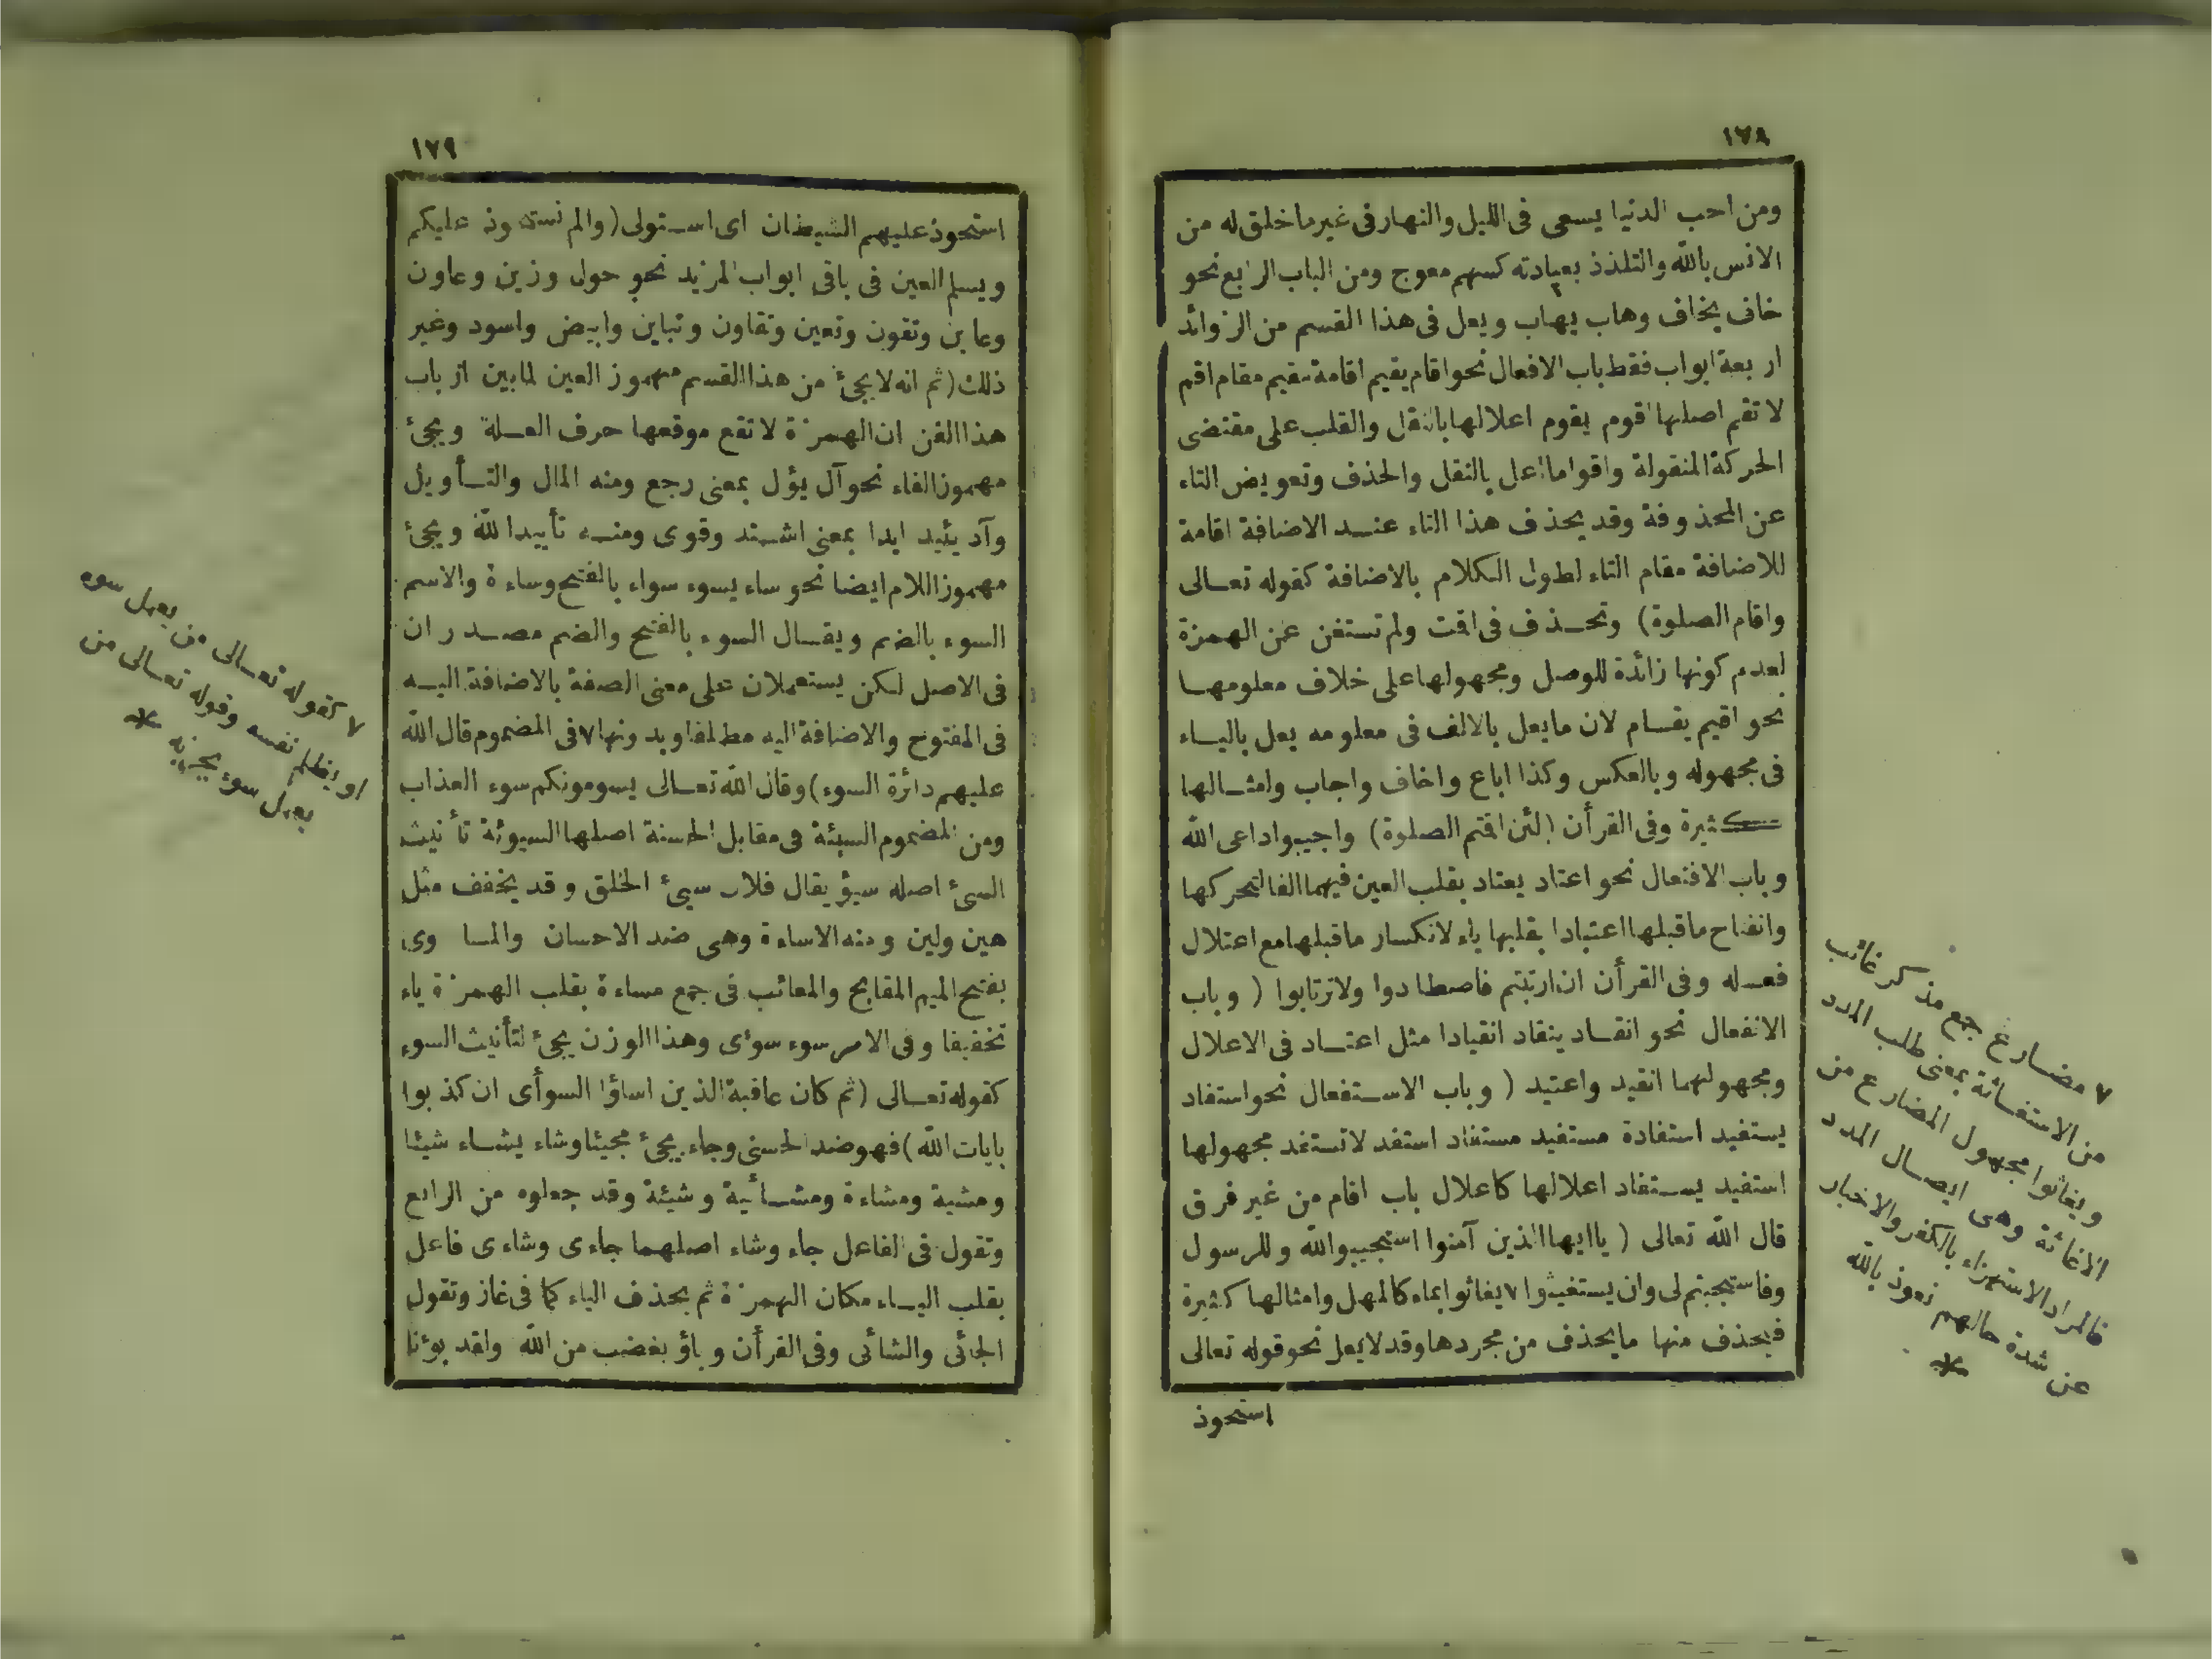 ١٧٨
ومن احب الدنيا يسعى فى الليل والنهار فى غير ما خلق له من
الانس بالله والتلذذ بعبادته كسهم معوج ومن الباب الرابع نحو
خاف يخاف وهاب يهاب ويعل فى هذا القسم من الزوائد
اربعة ابواب فقط باب الافعال نحو اقام يقيم اقامة مقيم مقام اقم
لا تقم اصلها اقوم يقوم اعلالها بالنقل والقلب على مقتضى
الحركة المنقولة واقواما اعل بالنقل والحذف وتعويض التاء
عن المحذوفة وقد يحذف هذا التاء عند الاضافة اقامة
للاضافة مقام التاء لطول الكلام بالاضافة كقوله تعالى
واقام الصلوة) وتحذف فى اقت ولم تستغن عن الهمزة
لعدم كونها زائدة للوصل ومجهولها على خلاف معلومها
نحو اقيم يقام لان ما يعل بالالف فى معلومه يعل بالياء
فى مجهوله وبالعكس وكذا اباع واخاف واجاب وامثالها
كثيرة وفى القرأن (لئن اقتم الصلوة) واجيبوا داعى الله
وباب الافتعال نحو اعتاد يعتاد بقلب العين فيهما الفا لتحركها
وانفتاح ما قبلها اعتيادا بقلبها ياء لانكسار ما قبلها مع اعتلال
فعله وفى القرأن ان ارتبتم فاصطادوا ولا ترتابوا ( وباب
الانفعال نحو انقاد ينقاد انقيادا مثل اعتاد فى الاعلال
ومجهولهما انقيد واعتيد ( وباب الاستفعال نحو استفاد
يستفيد استفادة مستفيد مستفاد استفد لا تستفد مجهولها
استفيد يستفاد اعلالها كاعلال باب اقام من غير فرق
قال الله تعالى ( يا ايها الذين آمنوا استجيبوا لله وللرسول
وفاستجبتم لى وان يستغيثوا ٧ يغاثوا بماء كالمهل وامثالها كثيرة
فيحذف منها ما يحذف من مجردها وقد لا يعل نحو قوله تعالى
استحوذ
٧ مضارع جمع مذكر غائب
من الاستغاثة بمعنى طلب المدد
ويغاثوا مجهول المضارع من
الاغاثة وهى ايصال المدد
فالمراد الاستهزاء بالكفر والاخبار
عن شدة حالهم نعوذ بالله
*
١٧٩
استحوذ عليهم الشيطان اى استولى (والم نستحوذ عليكم
ويسلم العين فى باقى ابواب المزيد نحو حول وزين وعاون
وعاين وتقون وتعين وتقاون وتباين وابيض واسود وغير
ذلك (ثم انه لا يجئ من هذا القسم مهموز العين لما بين ارباب
هذا الفن ان الهمزة لا تقع موقعها حرف العلة ويجئ
مهموز الفاء نحو آل يؤل بمعنى رجع ومنه المال والتأويل
وآد يئيد ايدا بمعنى اشتد وقوى ومنه تأييد الله ويجئ
مهموز اللام ايضا نحو ساء يسوء سواء بالفتح وساءة والاسم
السوء بالضم ويقال السوء بالفتح والضم مصدران
فى الاصل لكن يستعملان على معنى الصفة بالاضافة اليه
فى المفتوح والاضافة اليه مطلقا وبدونها ٧ فى المضموم قال الله
عليهم دائرة السوء) وقال الله تعالى يسومونكم سوء العذاب
ومن المضموم السيئة فى مقابل الحسنة اصلها السيوئة تأنيث
السئ اصله سيؤ يقال فلان سيئ الخلق وقد يخفف مثل
هين ولين ومنه الاساءة وهى ضد الاحسان والمساوى
بفتح الميم المقابح والمعائب فى جمع مساءة بقلب الهمزة ياء
تخفيفا وفى الامر سوء سوءى وهذا الوزن يجئ لتأنيث السوء
كقوله تعالى (ثم كان عاقبة الذين اساؤا السوأى ان كذبوا
بايات الله) فهو ضد الحسنى وجاء يجئ مجيئا وشاء يشاء شيئا
ومشية ومشاءة ومشائية وشيئة وقد جعلوه من الرابع
وتقول فى الفاعل جاء وشاء اصلهما جاءى وشاءى فاعل
بقلب الياء مكان الهمزة ثم بحذف الياء كما فى غاز وتقول
الجائى والشائى وفى القرأن وباؤ بغضب من الله ولقد بوئنا
٧ كقوله تعالى من يعمل سوء
او يظلم نفسه وقوله تعالى من
يعمل سوء يجز به *